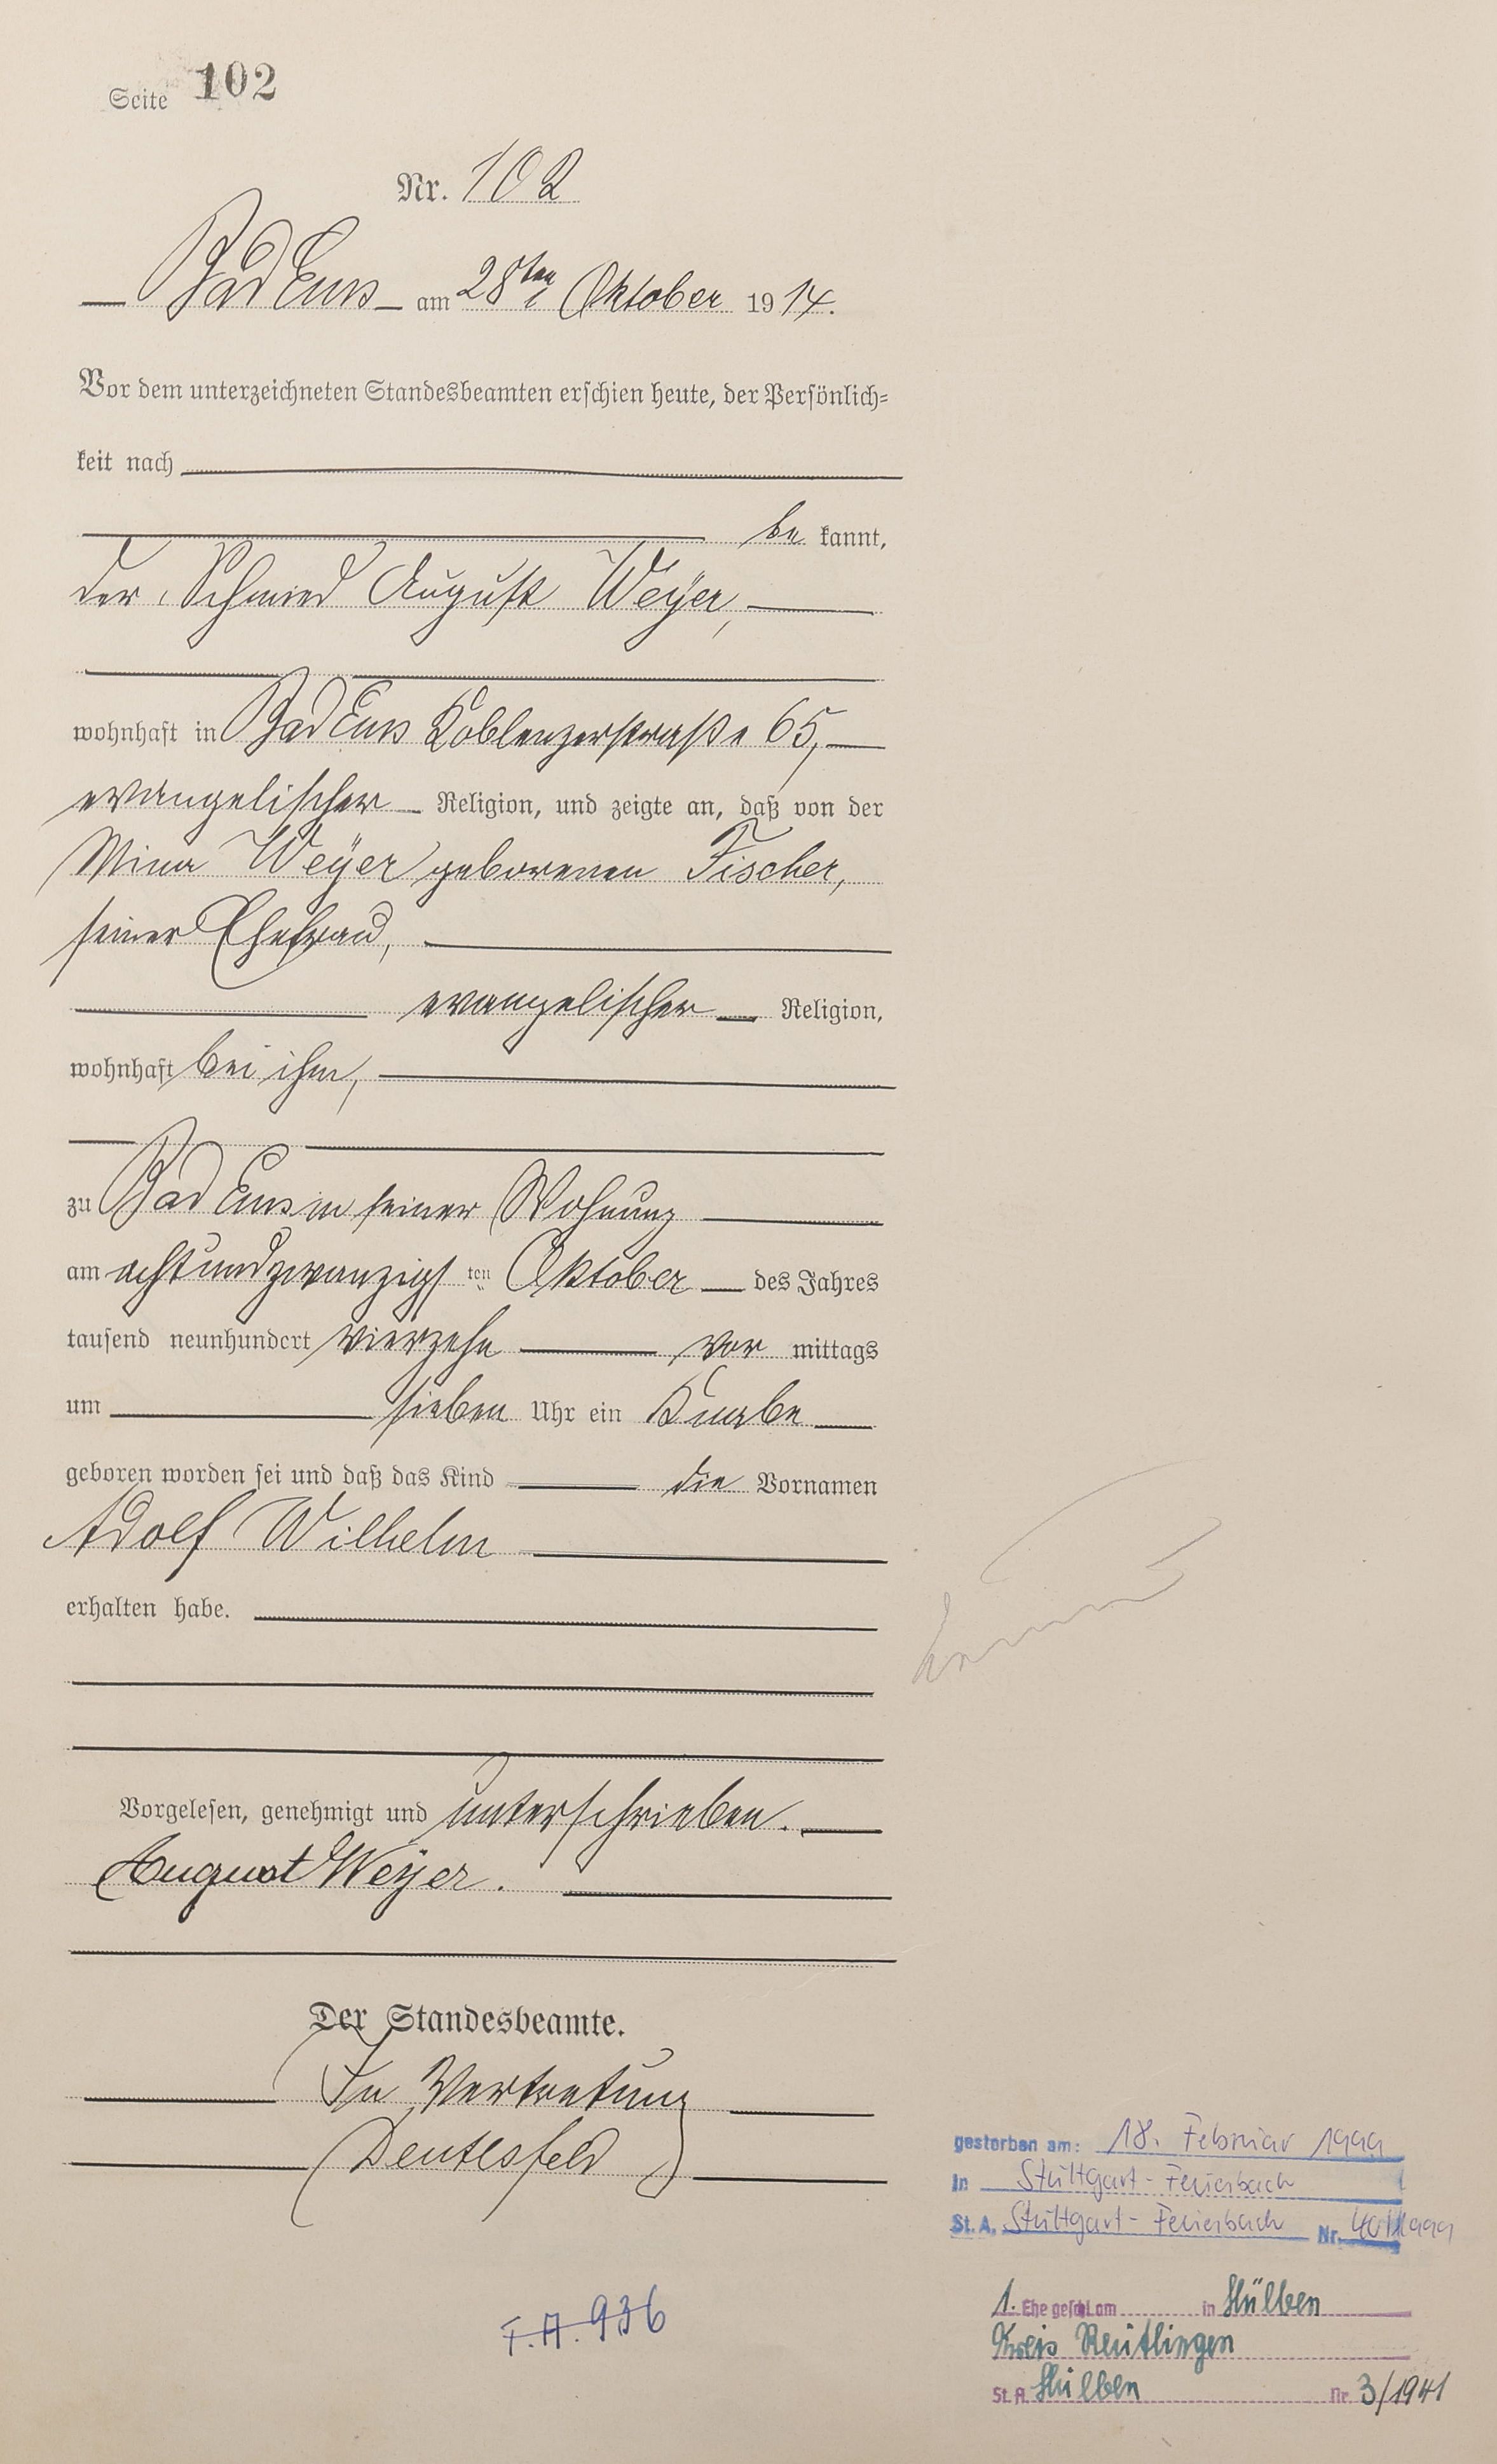 Seite 102
Nr. 102
Bad Ems am 28ten Oktober 1914.
Vor dem unterzeichneten Standesbeamten erschien heute, der Persönlich-
keit nach
be kannt,
der Schmied August Weyer,
wohnhaft in Bad Ems Koblenzerstraße 65,
evangelischer Religion, und zeigte an, daß von der
Mina Weyer geborenen Fischer,
seiner Ehefrau,
evangelischer Religion,
wohnhaft bei ihm,
zu Bad Ems in seiner Wohnung
am achtundzwanzigsten Oktober des Jahres
tausend neunhundert vierzehn vor mittags
um sieben Uhr ein Knabe
geboren worden sei und daß das Kind die Vornamen
Adolf Wilhelm
erhalten habe.
Vorgelesen, genehmigt und unterschrieben.
August Weyer.
Der Standesbeamte.
In Vertretung
gestorben am: 18. Februar 1999
In Stuttgart-Feuerbach
St. A. Stuttgart-Feuerbach Nr.
F.A. 936
1. Ehe geschl. am in Hülben
Kreis Reutlingen
St. A. Hülben Nr. 3/1941